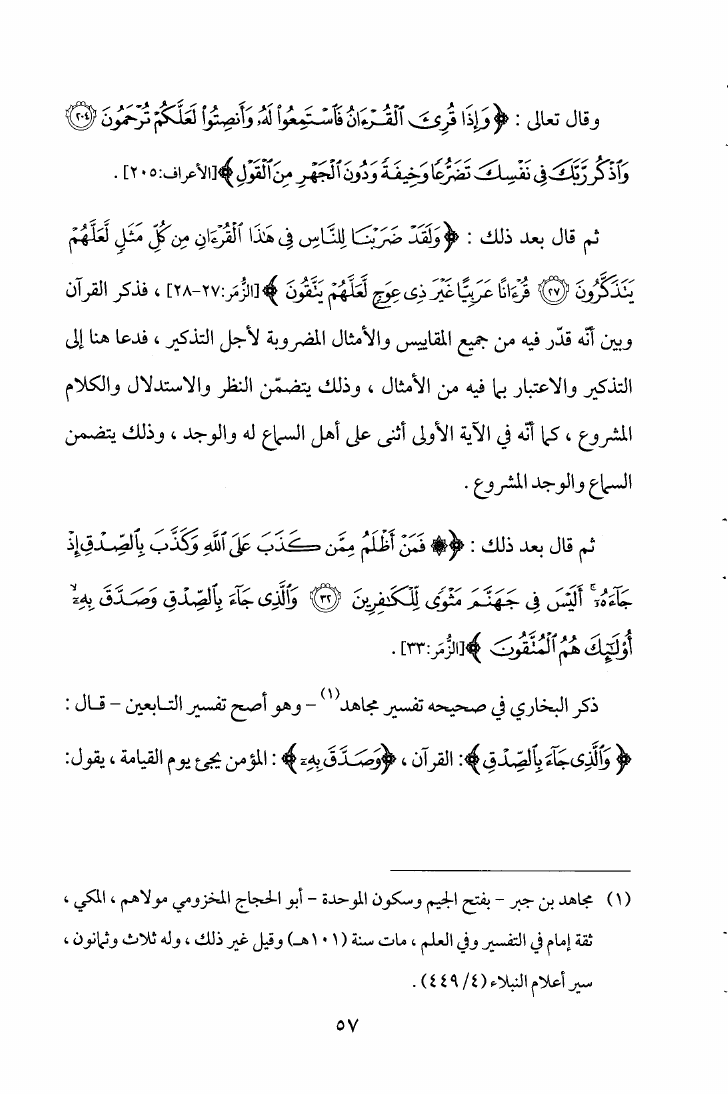 وقال تعالى : ﴿ وَإِذَا قُرِئَ ٱلْقُرْءَانُ فَٱسْتَمِعُوا۟ لَهُۥ وَأَنصِتُوا۟ لَعَلَّكُمْ تُرْحَمُونَ ۝٢٠٤
وَٱذْكُر رَّبَّكَ فِى نَفْسِكَ تَضَرُّعًا وَخِيفَةً وَدُونَ ٱلْجَهْرِ مِنَ ٱلْقَوْلِ ﴾ [الأعراف:٢٠٥] .
ثم قال بعد ذلك : ﴿ وَلَقَدْ ضَرَبْنَا لِلنَّاسِ فِى هَٰذَا ٱلْقُرْءَانِ مِن كُلِّ مَثَلٍ لَّعَلَّهُمْ
يَتَذَكَّرُونَ ۝٢٧ قُرْءَانًا عَرَبِيًّا غَيْرَ ذِى عِوَجٍ لَّعَلَّهُمْ يَتَّقُونَ ﴾ [الزُّمَر:٢٧-٢٨] ، فذكر القرآن
وبين أنّه قدّر فيه من جميع المقاييس والأمثال المضروبة لأجل التذكير ، فدعا هنا إلى
التذكير والاعتبار بما فيه من الأمثال ، وذلك يتضمّن النظر والاستدلال والكلام
المشروع ، كما أنّه في الآية الأولى أثنى على أهل السماع له والوجد ، وذلك يتضمن
السماع والوجد المشروع .
ثم قال بعد ذلك : ﴿ ۞ فَمَنْ أَظْلَمُ مِمَّن كَذَبَ عَلَى ٱللَّهِ وَكَذَّبَ بِٱلصِّدْقِ إِذْ
جَآءَهُۥٓ ۚ أَلَيْسَ فِى جَهَنَّمَ مَثْوًى لِّلْكَٰفِرِينَ ۝٣٢ وَٱلَّذِى جَآءَ بِٱلصِّدْقِ وَصَدَّقَ بِهِۦٓ ۙ
أُو۟لَٰٓئِكَ هُمُ ٱلْمُتَّقُونَ ﴾ [الزُّمَر:٣٣] .
ذكر البخاري في صحيحه تفسير مجاهد(١) – وهو أصح تفسير التابعين – قال :
﴿ وَٱلَّذِى جَآءَ بِٱلصِّدْقِ ﴾ : القرآن ، ﴿ وَصَدَّقَ بِهِۦٓ ﴾ : المؤمن يجئ يوم القيامة ، يقول:
(١) مجاهد بن جبر – بفتح الجيم وسكون الموحدة – أبو الحجاج المخزومي مولاهم ، المكي ،
ثقة إمام في التفسير وفي العلم ، مات سنة (١٠١هـ) وقيل غير ذلك ، وله ثلاث وثمانون ،
سير أعلام النبلاء (٤/ ٤٤٩) .
٥٧